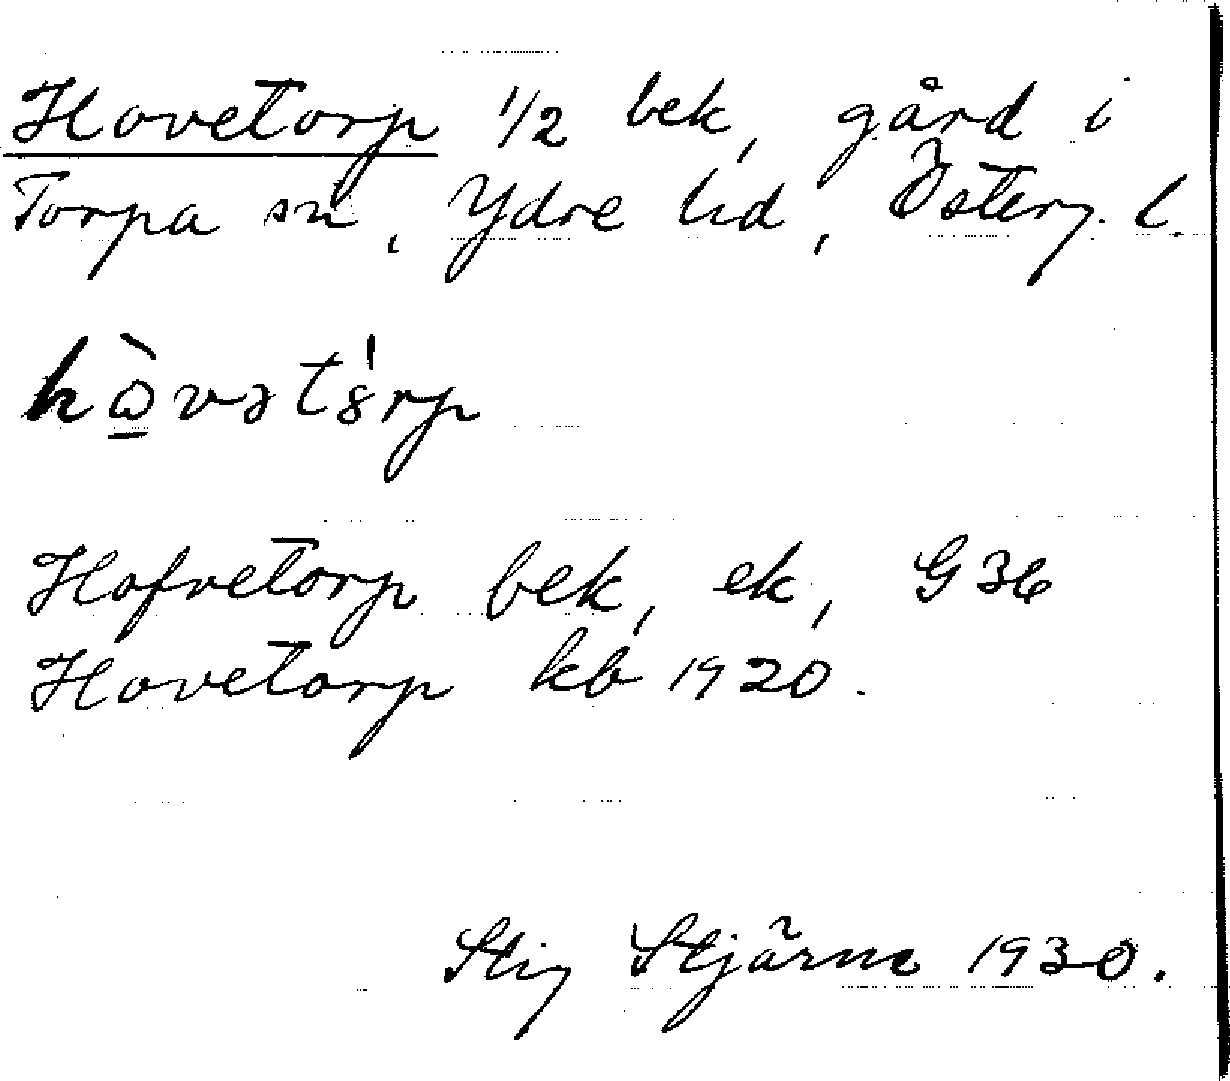 Hovetorp 1/2 bek, gård i
Torpa sn, Ydre hd, Österg. l.
hòvətórp
Hofvetorp bek, ek, G 36
Hovetorp kb 1920.
Stig Stjärne 1930.